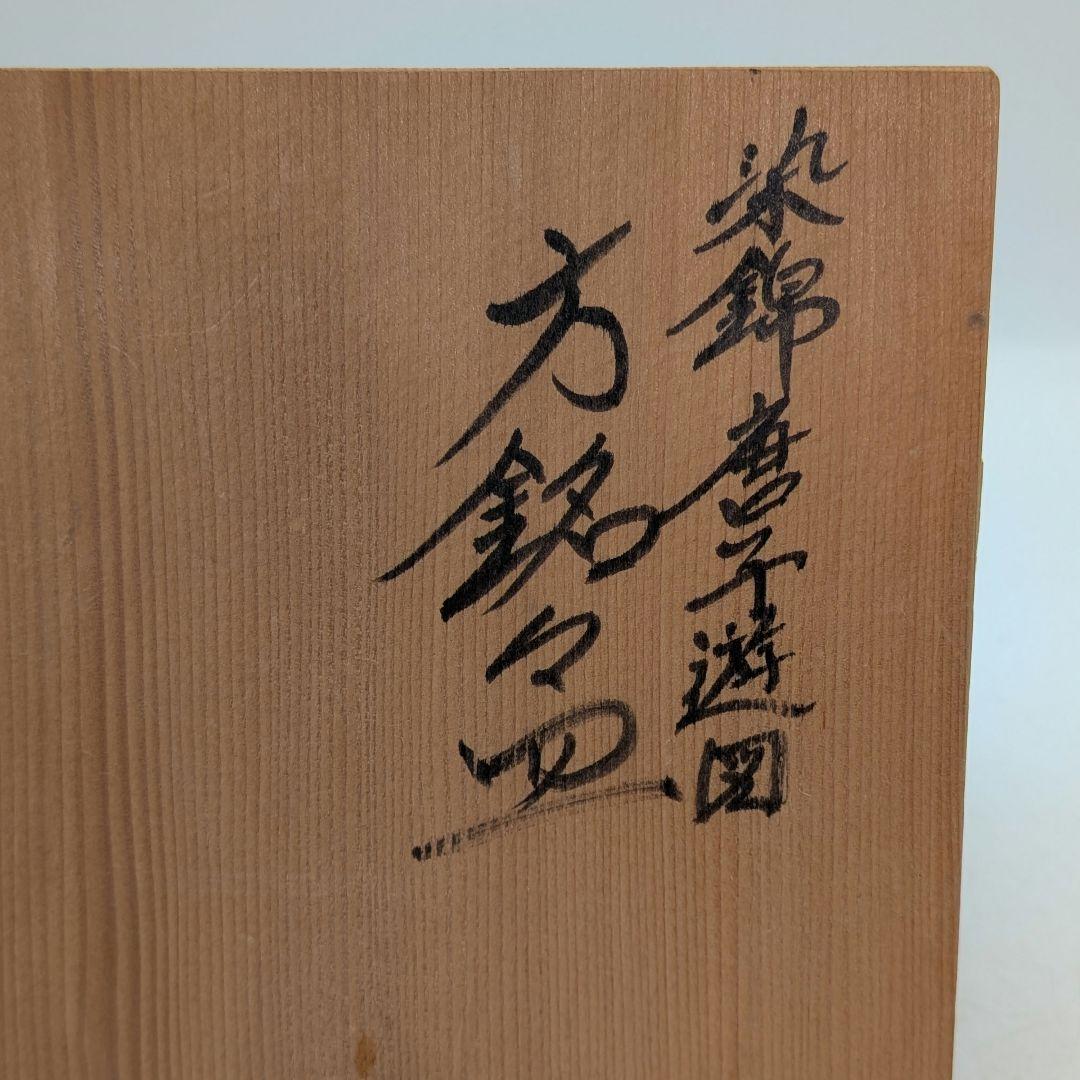 染錦唐子遊図
方銘々皿